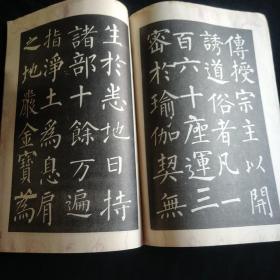 傳授宗主以開
誘道俗者凡一
百六十座運三
密於瑜伽契無
生於悉地日持
諸部十餘万遍
指淨土為息肩
之地嚴金寶為